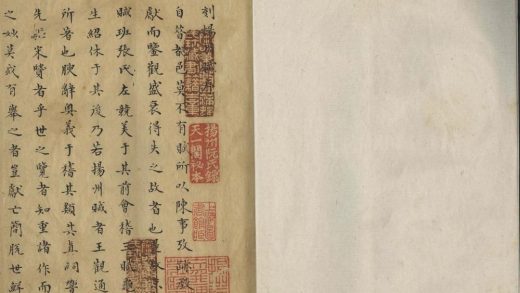 刻揚州賦序
自昔都邑莫不有賦所以陳事攷
獻而鑒觀盛衰得失之故者也
賦班張左競美于其前會稽三賦
生紹休于其後乃若揚州賦者王觀通
所著也腴辭奧義于稽其類其真詞
先宋贊者乎世之覽者知重諸作而
之妙莫或有舉之者豈獻亡簡脫世鮮
揚州阮氏錄
天一閣秘本